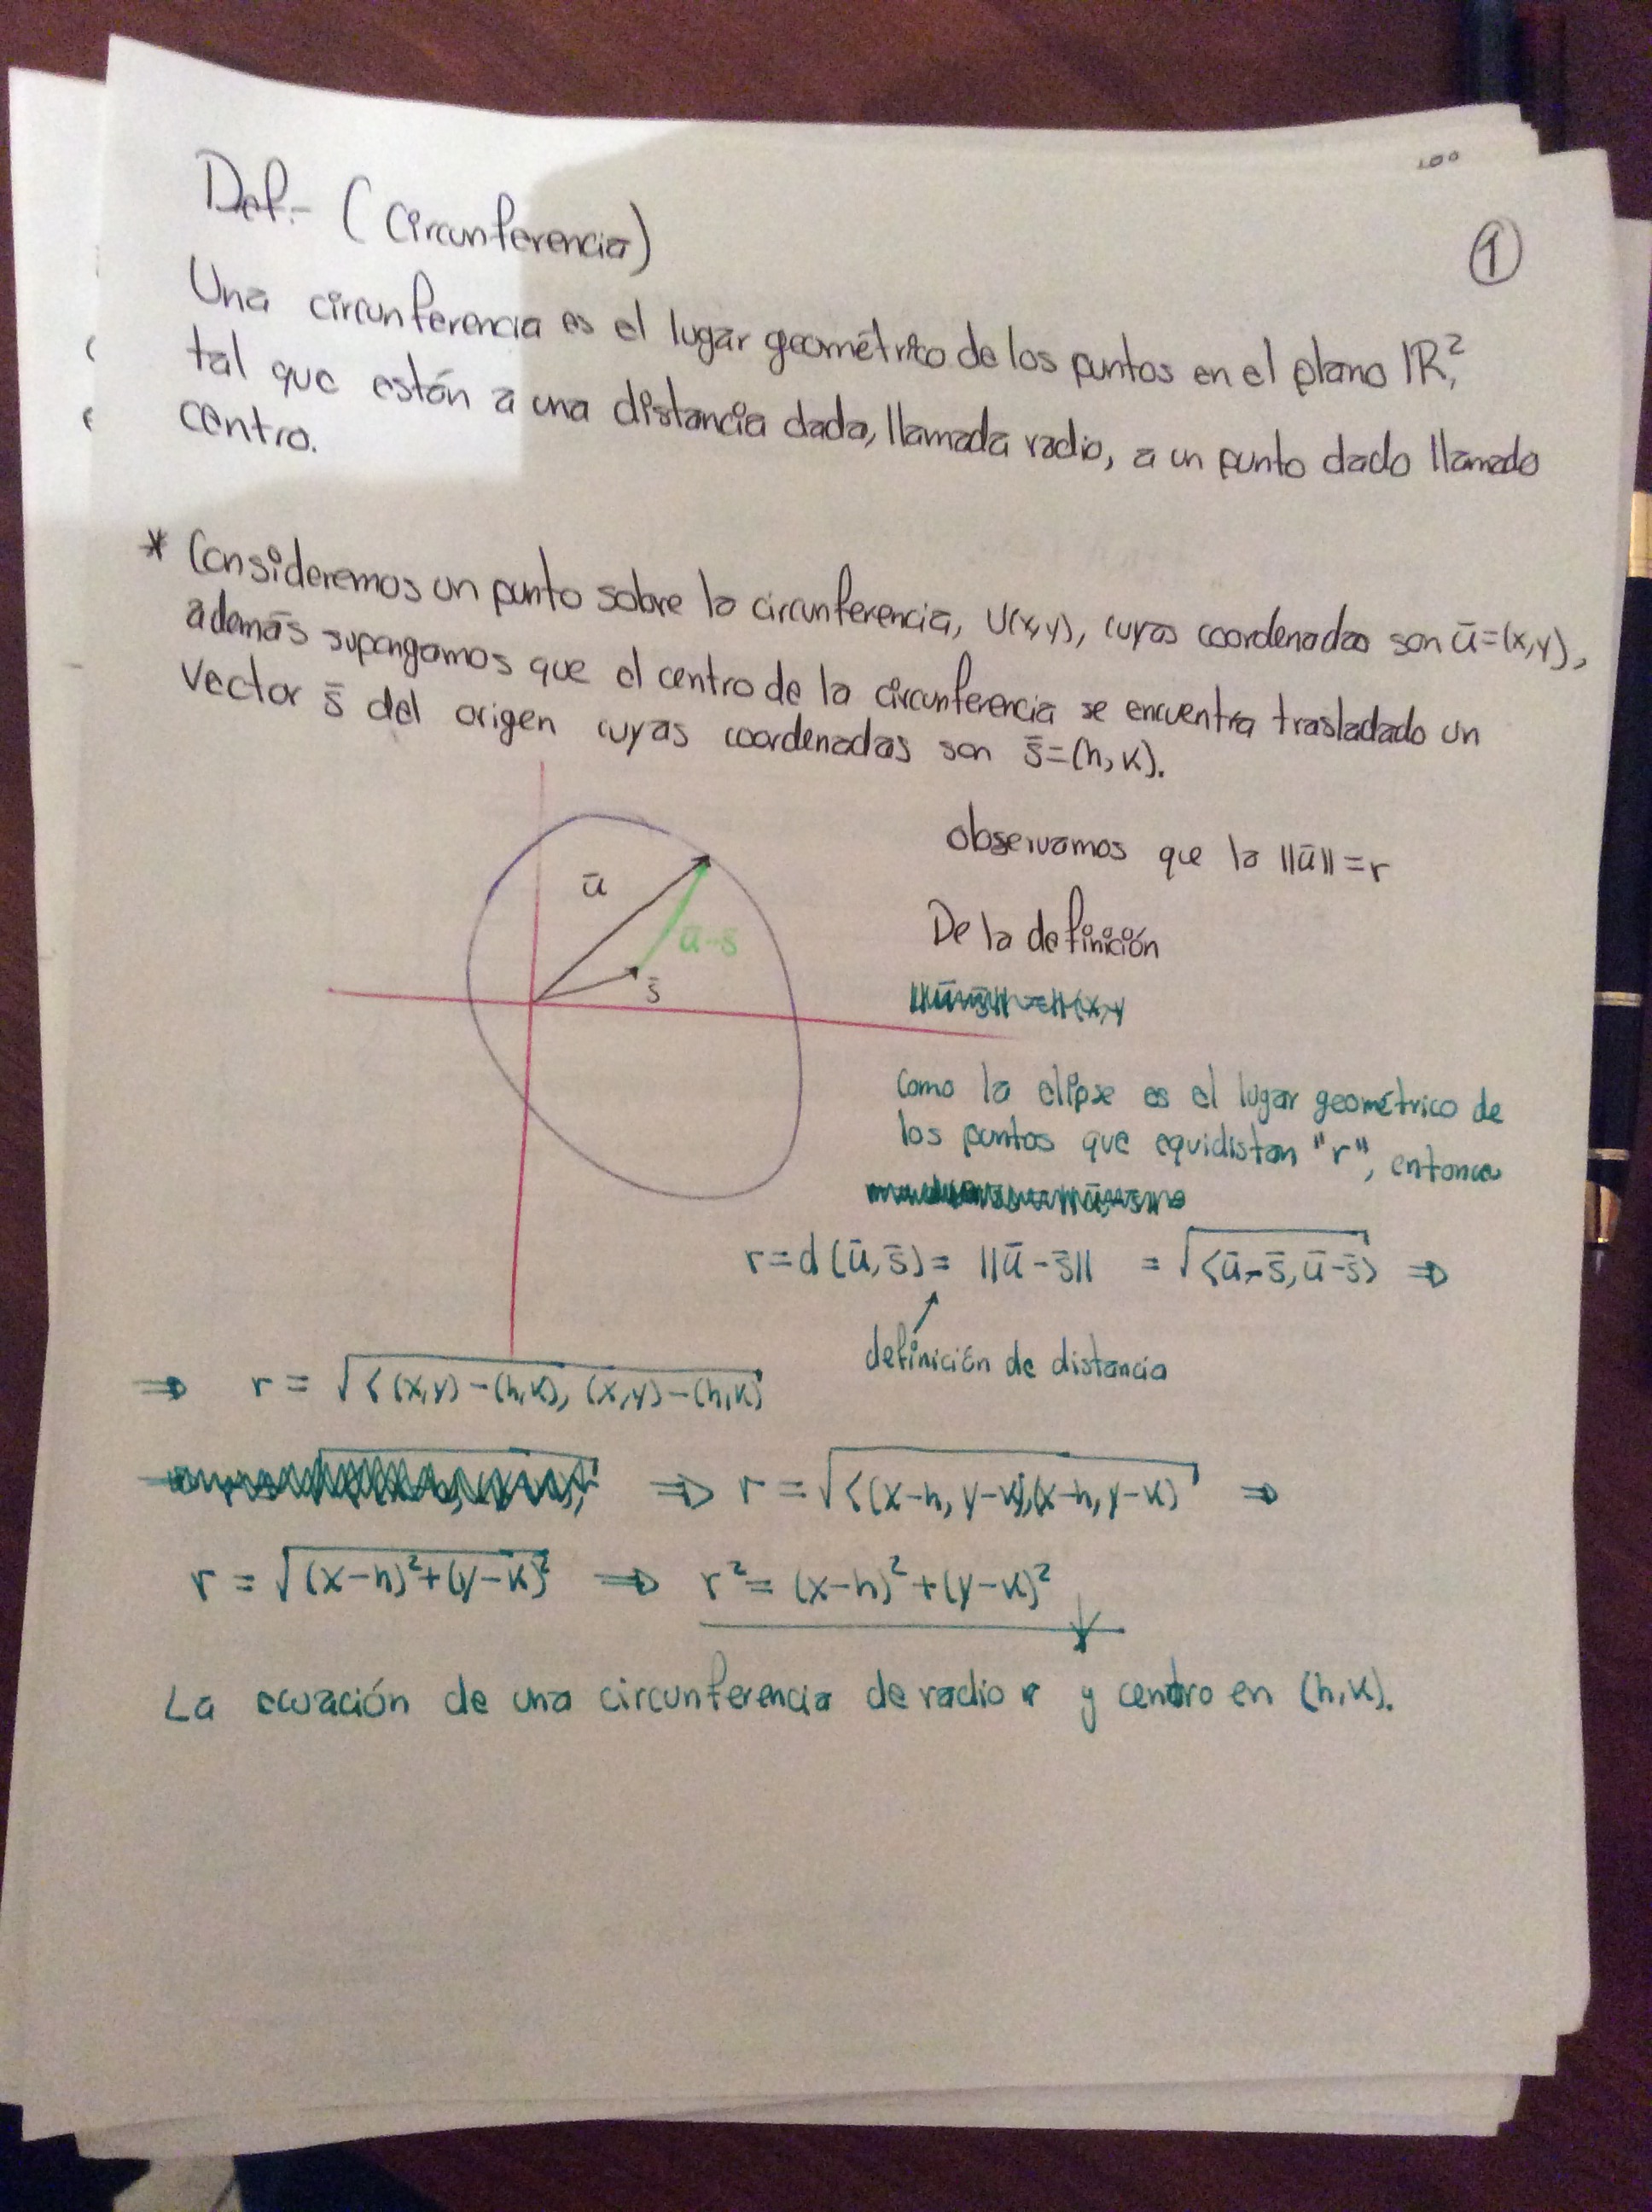 .00
Def.- (Circunferencia)
①
Una circunferencia es el lugar geométrico de los puntos en el plano IR²,
tal que están a una distancia dada, llamada radio, a un punto dado llamado
centro.
* Consideremos un punto sobre la circunferencia, U(x,y), cuyas coordenadas son ū=(x,y),
además supongamos que el centro de la circunferencia se encuentra trasladado un
vector s̄ del origen cuyas coordenadas son s̄=(h,k).
observamos que la ||ū||=r
ū
ū-s̄
s̄
De la definición
Como la elipse es el lugar geométrico de
los puntos que equidistan "r", entonces
r=d(ū,s̄)= ||ū-s̄|| = √<ū-s̄,ū-s̄> ⇒
definición de distancia
⇒ r = √<(x,y)-(h,k), (x,y)-(h,k)
⇒ r = √<(x-h, y-k),(x-h, y-k) ⇒
r = √(x-h)²+(y-k)² ⇒ r²= (x-h)²+(y-k)²
La ecuación de una circunferencia de radio r y centro en (h,k).